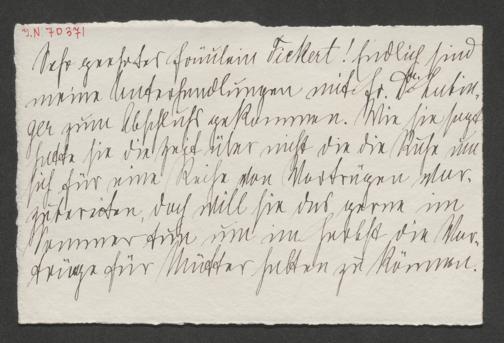 I.N 70371
Sehr geehrtes Fräulein Tickert! Endlich sind
meine Unterhandlungen mit Fr. Dr.
ger zum Abschluß gekommen. Wie sie sagt
hatte sie die Zeit über nicht die die Ruhe um
sich für eine Reihe von Vorträgen vor-
zubereiten, doch will sie das gerne im
Sommer tun um im Herbst die Vor-
träge für Mütter halten zu können.